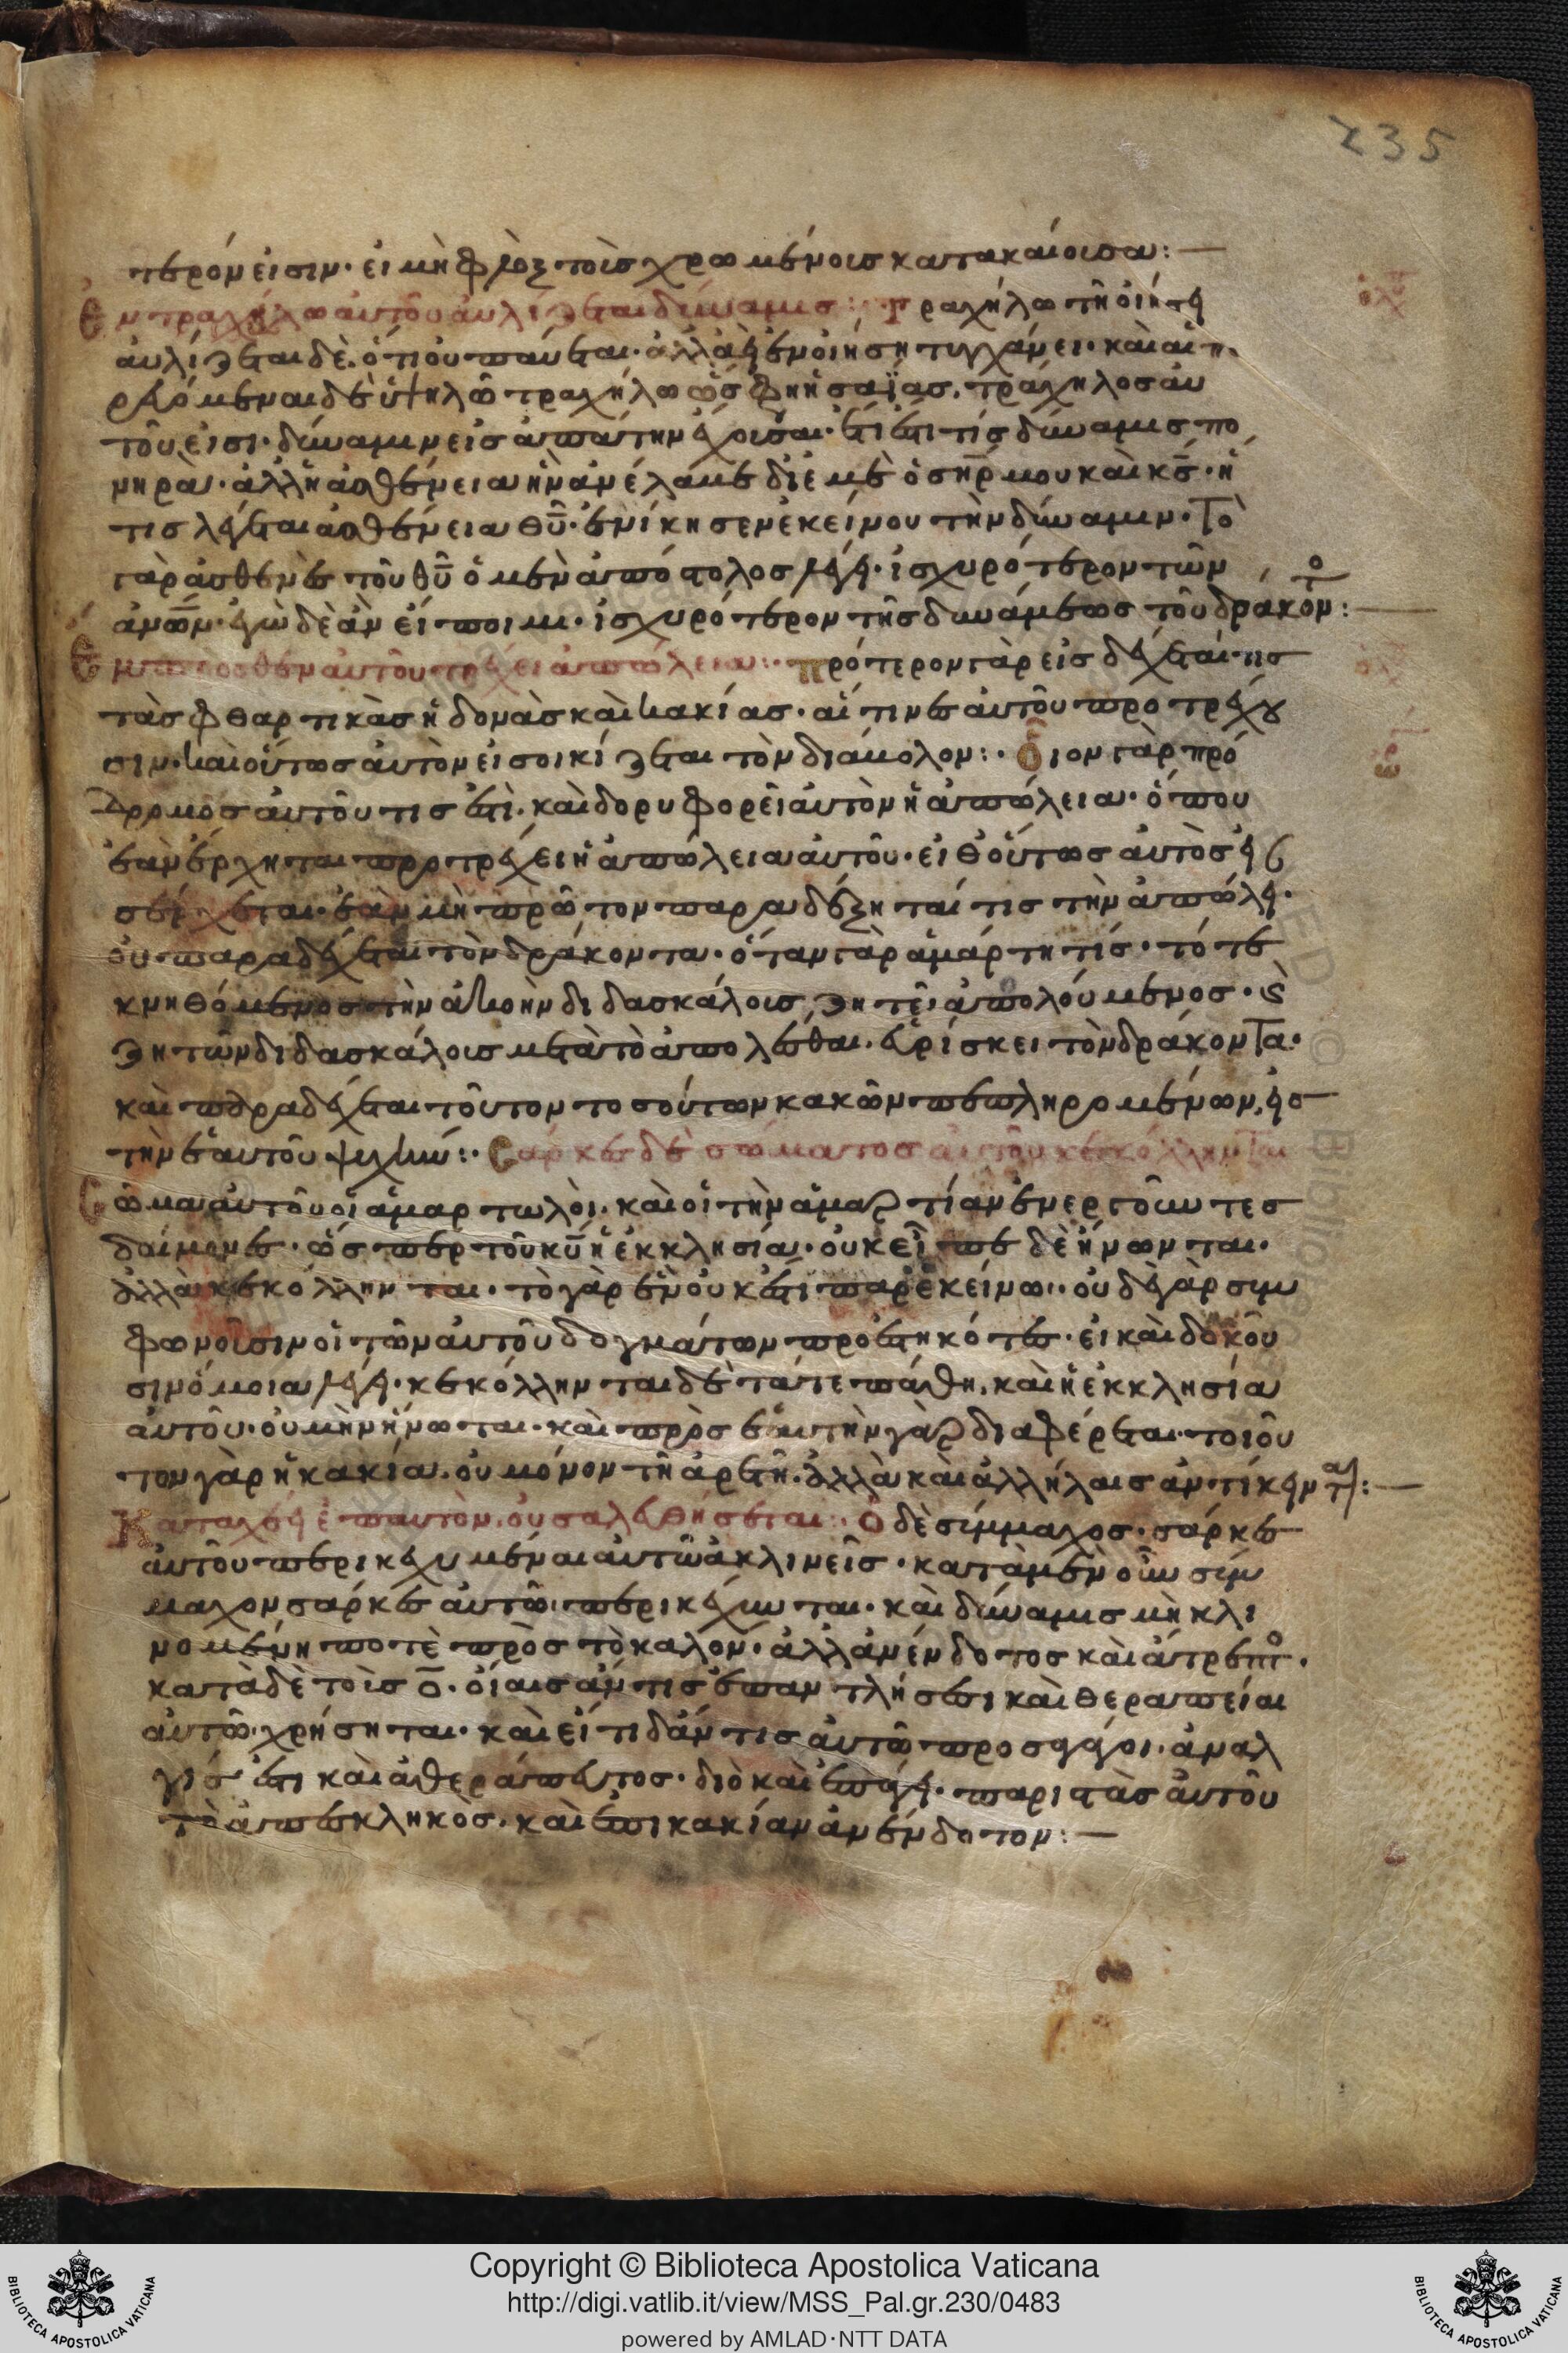 235
τερόν εἰσιν· εἰ μὴ φλὸξ τοῖς χρωμένοις κατακαίουσα:—
Ἐν τραχήλω αὐτοῦ αὐλίζεται δύναμις: Τραχήλω τῆ οἰήσει
αὐλίζεται δὲ. ὅτι οὐ παύεται. ἀλλ' ἀεὶ ἐν οἰήσει τυγχάνει· καὶ
δὲ ὑψηλῶ τραχήλω ὥς φη ἡσαΐας. τράχηλος αὐ
τοῦ εἰσι· δύναμιν εἰς ἀπάτην ἔχουσαι. ἔστι τίς δύναμις πο
νηρά· ἀλλ' ἡ ἀσθένεια ἣν ἀνέλαβε δι' ἐμὲ ὁ σηρ μου καὶ κς. ἥ
τις λέγεται ἀσθένεια θυ. ἐνίκησεν ἐκείνου τὴν δύναμιν. Τὸ
γὰρ ἀσθενὲς τοῦ θυ ὁ μὲν ἀπόστολος λέγει. ἰσχυρότερον τῶν
ανων. ἐγὼ δὲ ἂν εἴποιμι. ἰσχυρότερον τῆς δυνάμεως τοῦ δράκοντος:—
Ἔμπροσθεν αὐτοῦ τρέχει ἀπώλεια: πρότερον γὰρ εἰσδέχεταί τις
τὰς φθαρτικὰς ἡδονὰς καὶ κακίας. αἵτινες αὐτοῦ προτρέχου
σιν. καὶ οὕτως αὐτὸν εἰσοικίζεται τὸν διάβολον: Οἷον γὰρ πρό
δρομος αὐτοῦ τις ἐστὶ. καὶ δορυφορεῖ αὐτὸν ἡ ἀπώλεια. ὅπου
ἐὰν ἔρχηται προτρέχει ἡ ἀπώλεια αὐτοῦ. εἶθ' οὕτως αὐτὸς ἐπει
σέρχεται. ἐὰν μὴ πρῶτον παραδέξηταί τις τὴν ἀπώλει
οὐ παραδέχεται τὸν δράκοντα. ὅταν γὰρ ἁμάρτη τίς. τότε
κνηθόμενος τὴν ἀκοὴν διδασκάλοις ζητεῖ ἀπολούμενος. καὶ
ζητῶν διδασκάλοις μετὰ τὸ ἀπολέσθαι. εὑρίσκει τὸν δράκοντα.
καὶ παραδέχεται τοῦτον τοσούτων κακῶν πεπληρωμένων, εἰς
τὴν ἑαυτοῦ ψυχήν: Σάρκες δὲ σώματος αὐτοῦ κεκόλληνται
Σῶμα αὐτοῦ οἱ ἁμαρτωλοὶ. καὶ οἱ τὴν ἁμαρτίαν ἐνεργοῦντες
δαίμονες. ὥσπερ τοῦ κυ ἡ ἐκκλησία. οὐκ εἶπε δὲ ἥνωνται.
ἀλλὰ κεκόλληνται. τὸ γὰρ ἓν οὐκ ἔστι παρ' ἐκείνω. οὐδὲ γὰρ συμ
φωνοῦσιν οἱ τῶν αὐτοῦ δογμάτων προεστηκότες. εἰ καὶ δοκοῦ
σιν ὅμοια λέγειν. κεκόλληνται δὲ τά τε πάθη. καὶ ἡ ἐκκλησία
αὐτοῦ. οὐ μὴν ἥνωται. καὶ πρὸς ἑαυτὴν γὰρ διαφέρεται. τοιοῦ
τον γὰρ ἡ κακία. οὐ μόνον τῆ ἀρετῆ. ἀλλὰ καὶ ἀλλήλαις ἀντίκεινται:—
Καταχέει ἐπ' αὐτὸν. οὐ σαλευθήσεται: Ὁ δὲ σύμμαχος. σάρκες
αὐτοῦ περικεχυμέναι αὐτῶ ἀκλινεῖς. κατὰ μὲν οὖν σύμ
μαχον σάρκες αὐτῶ περικέχυνται. καὶ δύναμις μὴ κλι
νομένη ποτὲ πρὸς τὸ καλὸν. ἀλλ' ἀνένδοτος καὶ ἄτρεπτος.
κατὰ δὲ τοὺς ο. οἵαις ἄν τις ἐπαντλήσεσι καὶ θεραπείαι
αὐτῶ χρήσηται. καὶ εἴτι δἄν τις αὐτῶ προσαγάγοι. ἀναλ
γής ἐστι καὶ ἀθεράπευτος. διὸ καὶ ἐπάγει. παριστὰς αὐτοῦ
τὸ ἀπεσκληκὸς. καὶ ἐπὶ κακίαν ἀνένδοτον:—
Copyright © Biblioteca Apostolica Vaticana
http://digi.vatlib.it/view/MSS_Pal.gr.230/0483
powered by AMLAD·NTT DATA
BIBLIOTECA APOSTOLICA VATICANA
BIBLIOTECA APOSTOLICA VATICANA